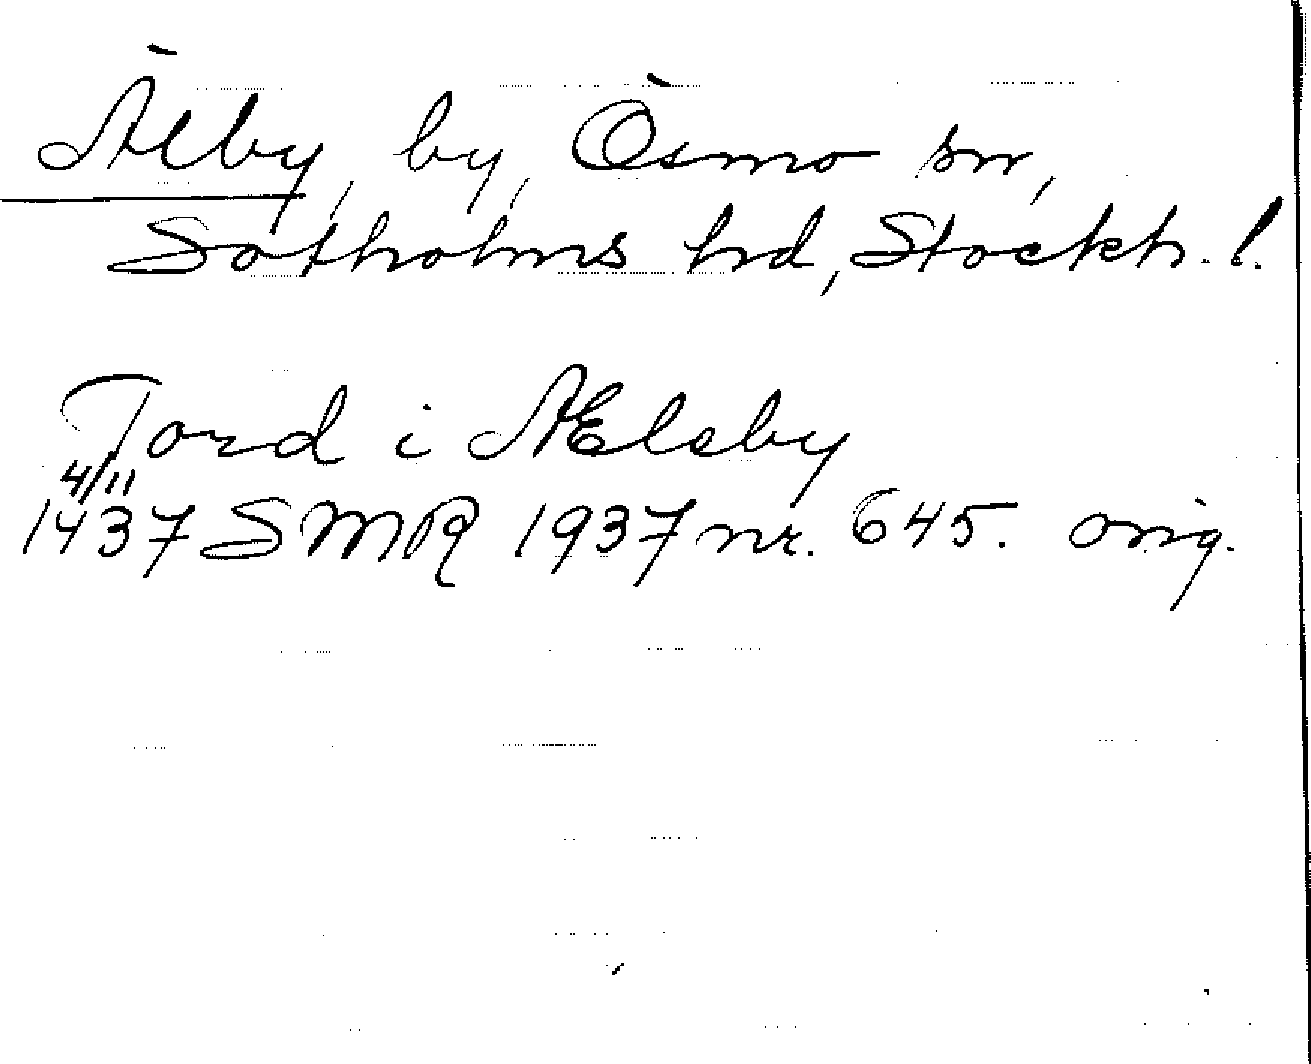 Älby, by, Ösmo sn,
Sotholms hd, Stockh. l.
Tord i Ælsby
4/11
1437 SMR 1937 nr. 645. orig.